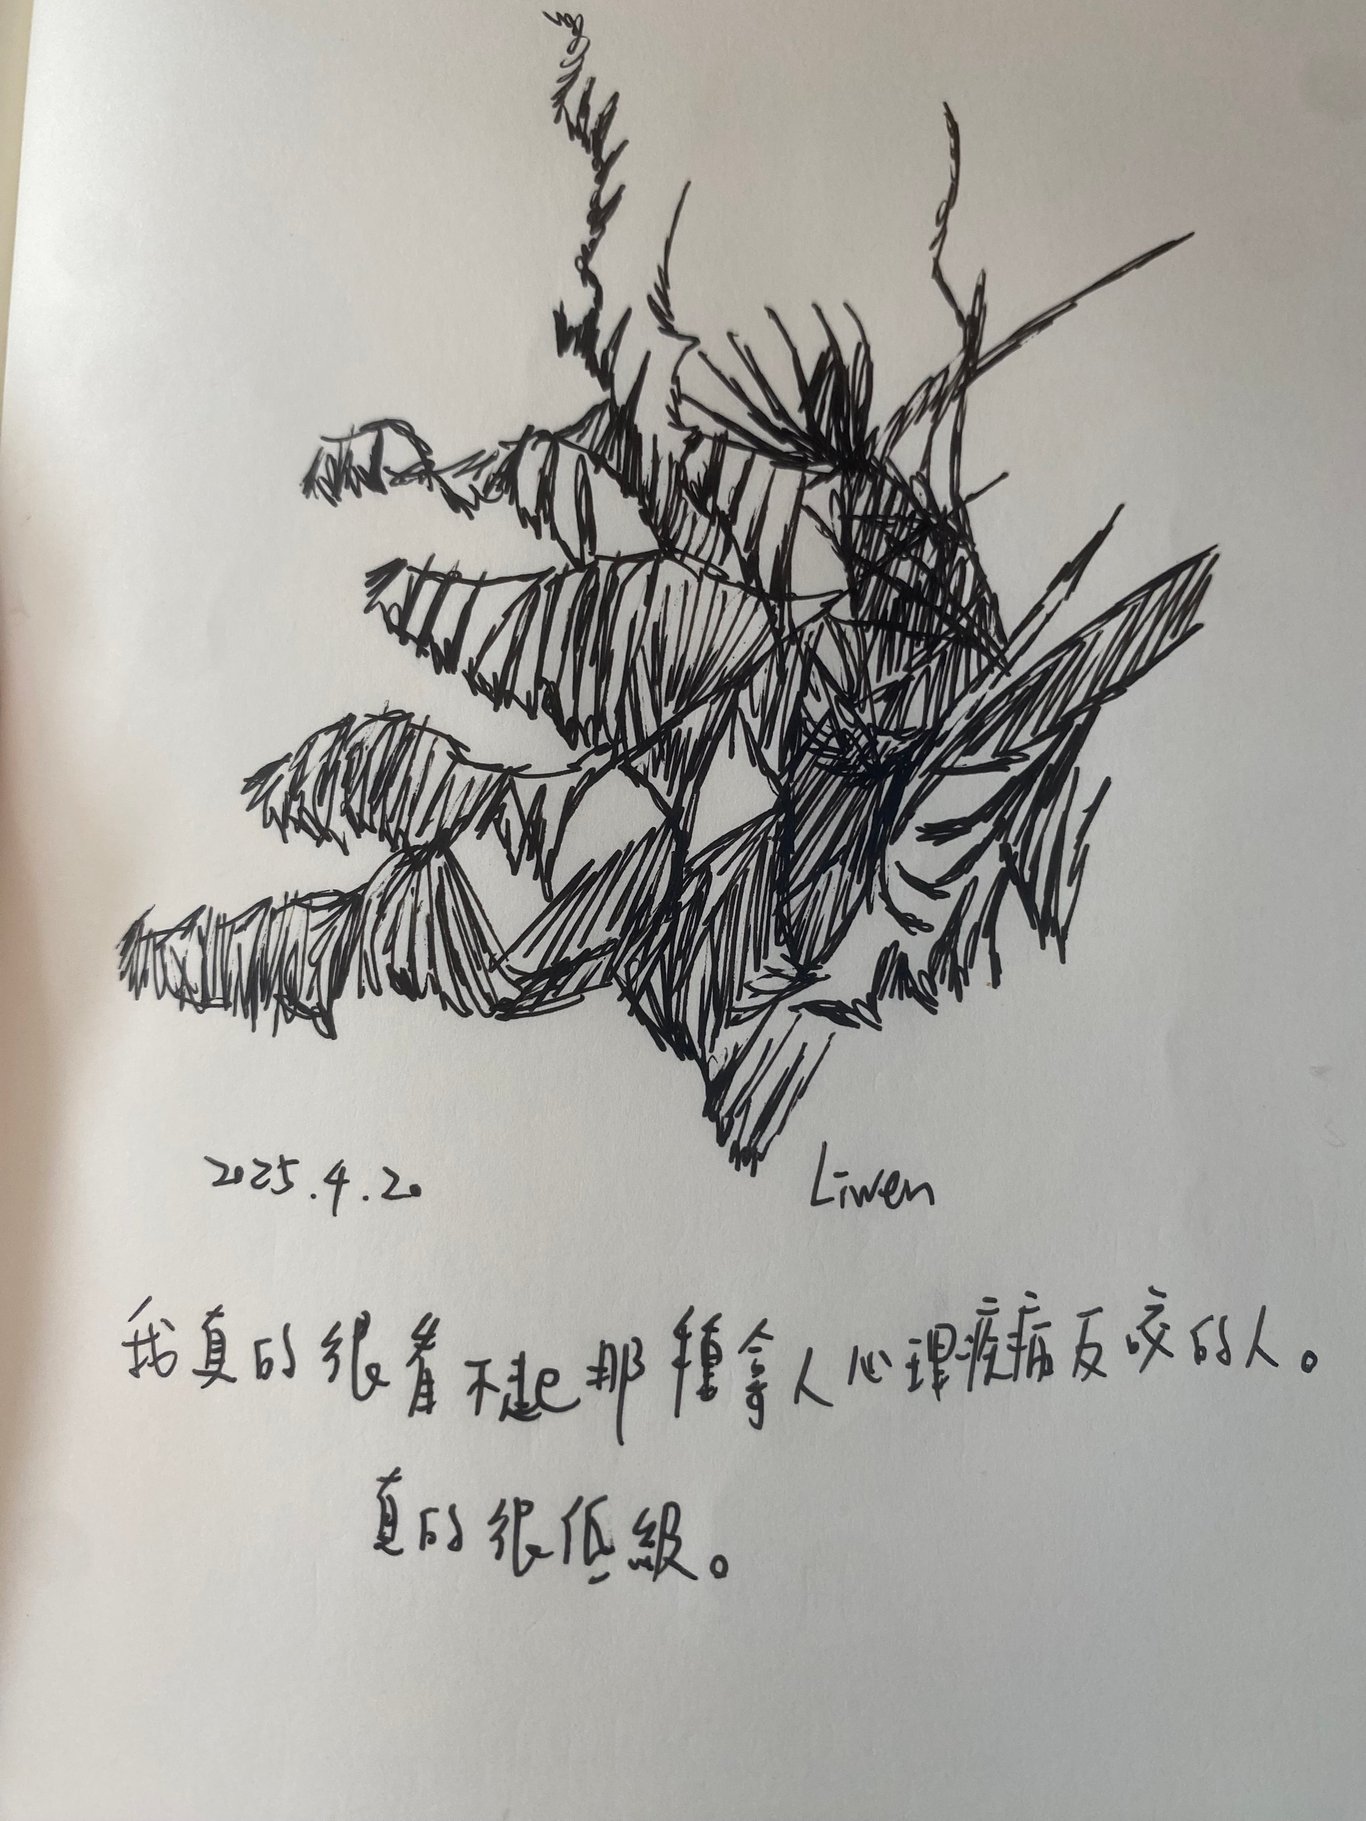 2025.4.20 Liwen
我真的很看不起那種拿人心理疾病反咬的人。
真的很低級。